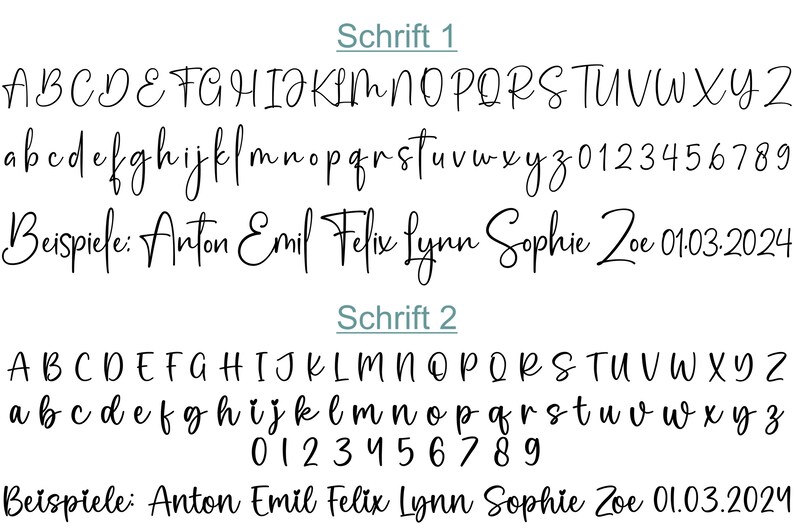 Schrift 1
A B C D E F G H I J K L M N O P Q R S T U V W X Y Z
a b c d e f g h i j k l m n o p q r s t u v w x y z 0 1 2 3 4 5 6 7 8 9
Beispiele: Anton Emil Felix Lynn Sophie Zoe 01.03.2024
Schrift 2
A B C D E F G H I J K L M N O P Q R S T U V W X Y Z
a b c d e f g h i j k l m n o p q r s t u v w x y z
0 1 2 3 4 5 6 7 8 9
Beispiele: Anton Emil Felix Lynn Sophie Zoe 01.03.2024